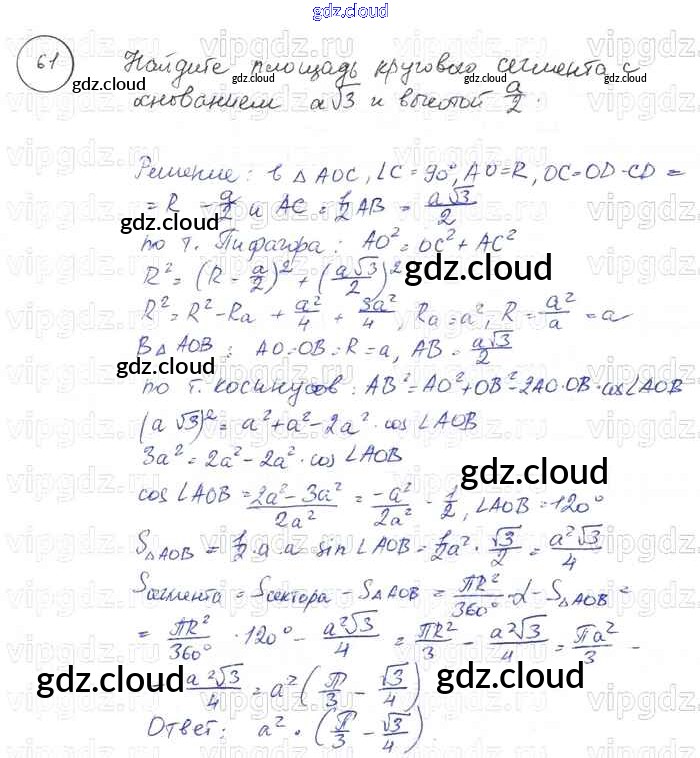 gdz.cloud
61 Найдите площадь кругового сегмента с
основанием a√3 и высотой a/2.
Решение: в △ AOC, ∠C = 90°, AO = R, OC = OD - CD =
= R - a/2 и AC = 1/2 AB = a√3/2
по т. Пифагора: AO² = OC² + AC²
R² = (R - a/2)² + (a√3/2)²
R² = R² - Ra + a²/4 + 3a²/4, Ra = a², R = a²/a = a
В △ AOB: AO = OB = R = a, AB = a√3/2
по т. косинусов: AB² = AO² + OB² - 2AO·OB·cos∠AOB
(a√3)² = a² + a² - 2a²·cos∠AOB
3a² = 2a² - 2a²·cos∠AOB
cos∠AOB = 2a² - 3a²/2a² = -a²/2a² - 1/2, ∠AOB = 120°
S△AOB = 1/2·a·a·sin∠AOB = 1/2a²·√3/2 = a²√3/4
Sсегмента = Sсектора - S△AOB = πR²/360°·α - S△AOB =
= πR²/360°·120° - a²√3/4 = πR²/3 - a²√3/4 = πa²/3 -
a²√3/4 = a²(π/3 - √3/4)
Ответ: a²·(π/3 - √3/4)